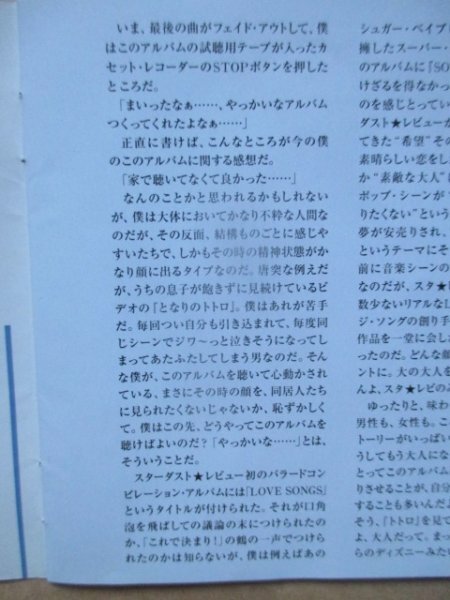 いま、最後の曲がフェイド・アウトして、僕
はこのアルバムの試聴用テープが入ったカ
セット・レコーダーのSTOPボタンを押した
ところだ。
「まいったなぁ……、やっかいなアルバム
つくってくれたよなぁ……」
正直に書けば、こんなところが今の僕
のこのアルバムに関する感想だ。
「家で聴いてなくて良かった……」
なんのことかと思われるかもしれない
が、僕は大体においてかなり不粋な人間な
のだが、その反面、結構ものごとに感じや
すいたちで、しかもその時の精神状態がか
なり顔に出るタイプなのだ。唐突な例えだ
が、うちの息子が飽きずに見続けているビ
デオの『となりのトトロ』。僕はあれが苦手
だ。毎回つい自分も引き込まれて、毎度同
じシーンでジワ〜っと泣きそうになってし
まってあたふたしてしまう男なのだ。そん
な僕が、このアルバムを聴いて心動かされ
ている、まさにその時の顔を、同居人たち
に見られたくないじゃないか、恥ずかしく
て。僕はこの先、どうやってこのアルバムを
聴けばよいのだ？「やっかいな……」とは、
そういうことだ。
スターダスト★レビュー初のバラードコン
ピレーション・アルバムには「LOVE SONGS」
というタイトルが付けられた。それが口角
泡を飛ばしての議論の末につけられたの
か、「これで決まり!」の鶴の一声でつけら
れたのかは知らないが、僕は例えばあの
シュガー・ベイブ
擁したスーパー・
のアルバムに「SO
けざるを得なかっ
のを感じとってい
ダスト★レビュー
てきた“希望”その
素晴らしい恋をし
か“素敵な大人”
ポップ・シーンが“
りたくない”という
夢が安売りされ、
というテーマにそ
前に音楽シーンの
なのだが、スタ★
数少ないリアルなL
ジ・ソングの創り手
作品を一堂に会し
ったのだ。どんな顔
ントに。大の大人を
んよ、スタ★レビの
ゆったりと、味わ
男性も、女性も。こ
トーリーがいっぱい
うしてもう大人にな
とってこのアルバム
りさせることが、自分
することも多いんだよ
そう、「トトロ」を見て
よ、大人だって。まっ
らのディズニーみたい